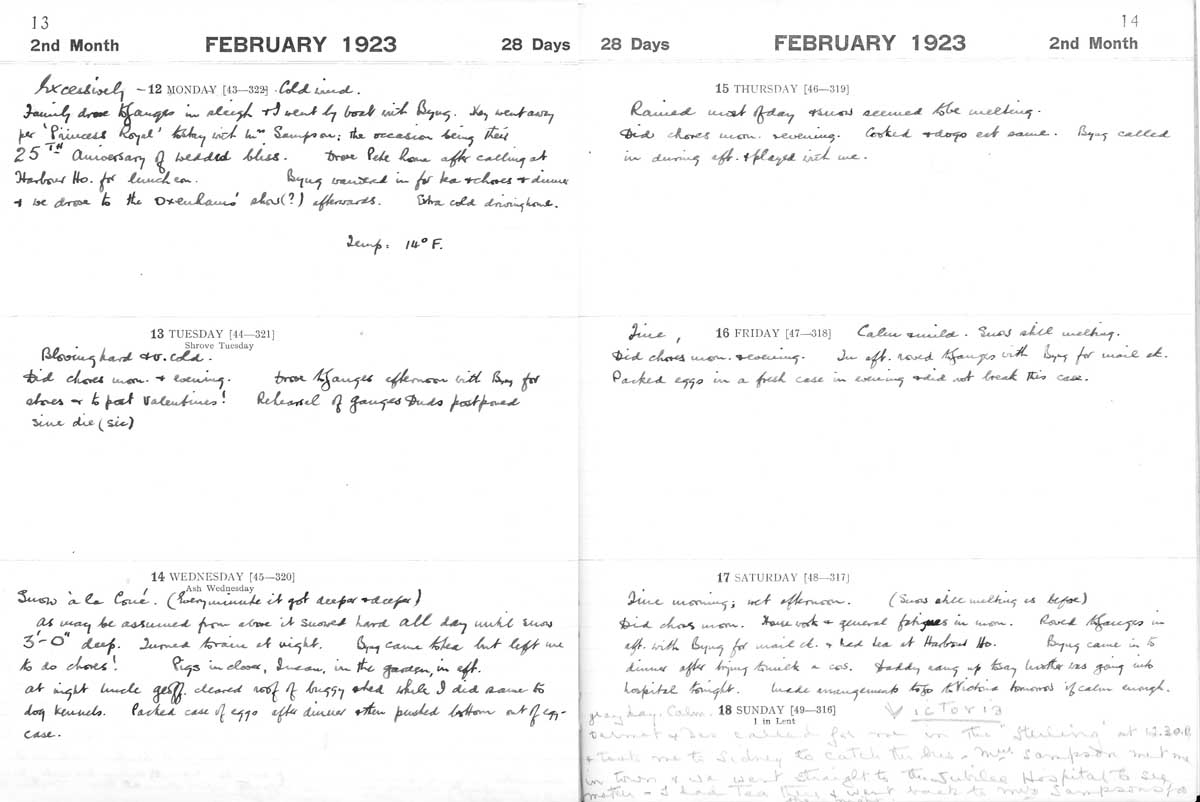 13
2nd Month FEBRUARY 1923 28 Days
Excessively - 12 MONDAY [43—322] Cold wind.
Family drove to Ganges in sleigh & I went by boat with Byng. They went away
per 'Princess Royal' to stay with Mrs Sampson; the occasion being their
25TH Aniversary of wedded bliss. Drove Pete home after calling at
Harbour Ho. for luncheon. Byng wandered in for tea & chores & dinner
& we drove to the Oxenhams' show(?) afterwards. Extra cold driving home.
Temp: 14° F.
13 TUESDAY [44—321]
Shrove Tuesday
Blowing hard & v. cold.
Did chores morn. & evening. Drove to Ganges afternoon with Byng for
stores & to post Valentines! Rehearsel of Ganges Duds postponed
sine die (sic)
14 WEDNESDAY [45—320]
Ash Wednesday
Snow à la Coué. (Every minute it got deeper & deeper)
As may be assumed from above it snowed hard all day until snow
3'-0" deep. Turned to rain at night. Byng came to tea but left me
to do chores! Pigs in clover, I mean, in the garden, in aft.
At night Uncle Geoff. cleared roof of buggy shed while I did same to
dog kennels. Packed case of eggs after dinner & then pushed bottom out of egg-
case.
14
28 Days FEBRUARY 1923 2nd Month
15 THURSDAY [46—319]
Rained most of day & snow seemed to be melting.
Did chores morn. & evening. Cooked & dogs eat same. Byng called
in during aft. & played with me.
Fine, 16 FRIDAY [47—318] Calm & mild. Snow still melting.
Did chores morn. & evening. In aft. rowed to Ganges with Byng for mail etc.
Packed eggs in a fresh case in evening & did not break this case.
17 SATURDAY [48—317]
Fine morning; wet afternoon. (Snow still melting as before)
Did chores morn. House work & general fatigues in morn. Rowed to Ganges in
aft. with Byng for mail etc. & had tea at Harbour Ho. Byng came in to
dinner after trying to milk a cow. Daddy rang up to say mother was going into
hospital tonight. Made arrangements to go to Victoria tomorrow if calm enough.
gray day. Calm. 18 SUNDAY [49—316] VICTORIA
1 in Lent
& Des called for me in the "Sterling" at 12.30.P.
& took me to Sidney to catch the bus. Mrs Sampson met me
in town & we went straight to the Jubilee Hospital to see
mater - I had Tea there & went back to Mrs Sampson's for
the night.